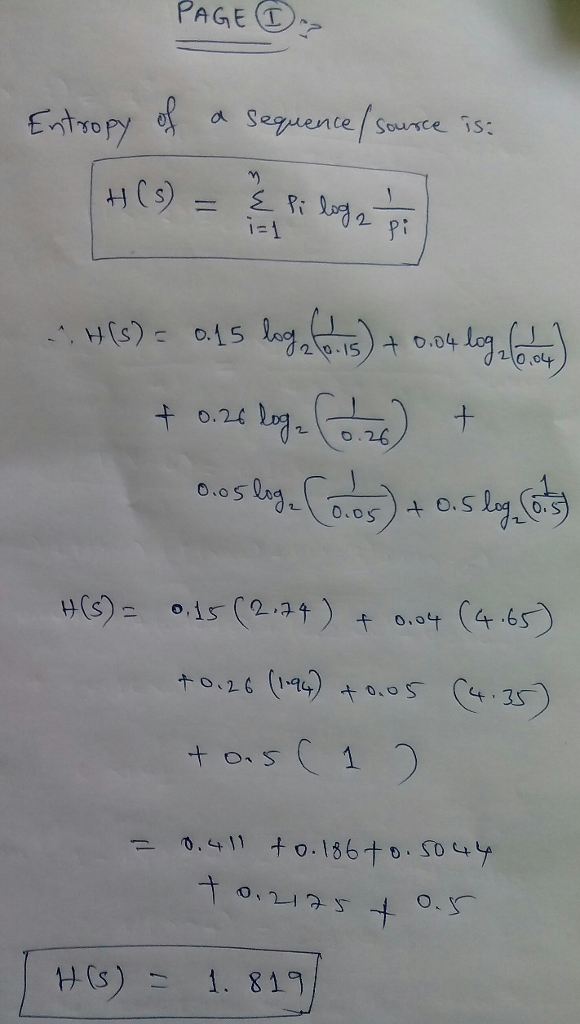 PAGE Ⓘ :-
Entropy of a sequence/source is:
H(S) = n Σ i=1 Pi log₂ 1/Pi
∴ H(S) = 0.15 log₂(1/0.15) + 0.04 log₂(1/0.04)
+ 0.26 log₂(1/0.26) +
0.05 log₂(1/0.05) + 0.5 log₂(1/0.5)
H(S) = 0.15 (2.74) + 0.04 (4.65)
+0.26 (1.94) +0.05 (4.35)
+ 0.5 ( 1 )
= 0.411 +0.186+0.5044
+ 0.2175 + 0.5
H(S) = 1.819